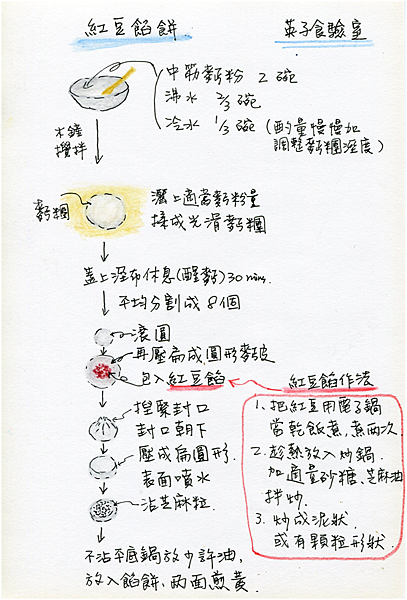 紅豆餡餅
英子食驗室
中筋麵粉 2 碗
沸水 2/3 碗
冷水 1/3 碗 (酌量慢慢加
調整麵糰溼度)
木鏟
攪拌
麵糰
灑上適當麵粉量
揉成光滑麵糰
蓋上溼布休息(醒麵)30 mins.
平均分割成 8個
滾圓
再壓扁成圓形麵皮
包入紅豆餡
捏緊封口
封口朝下
壓成扁圓形.
表面噴水
沾芝麻粒.
不沾平底鍋放少許油,
放入餡餅、兩面煎黃.
紅豆餡作法
1、把紅豆用電子鍋
當乾飯煮,煮兩次.
2、趁熱放入炒鍋.
加適量砂糖、芝麻油
拌炒.
3、炒成泥狀.
或有顆粒形狀.